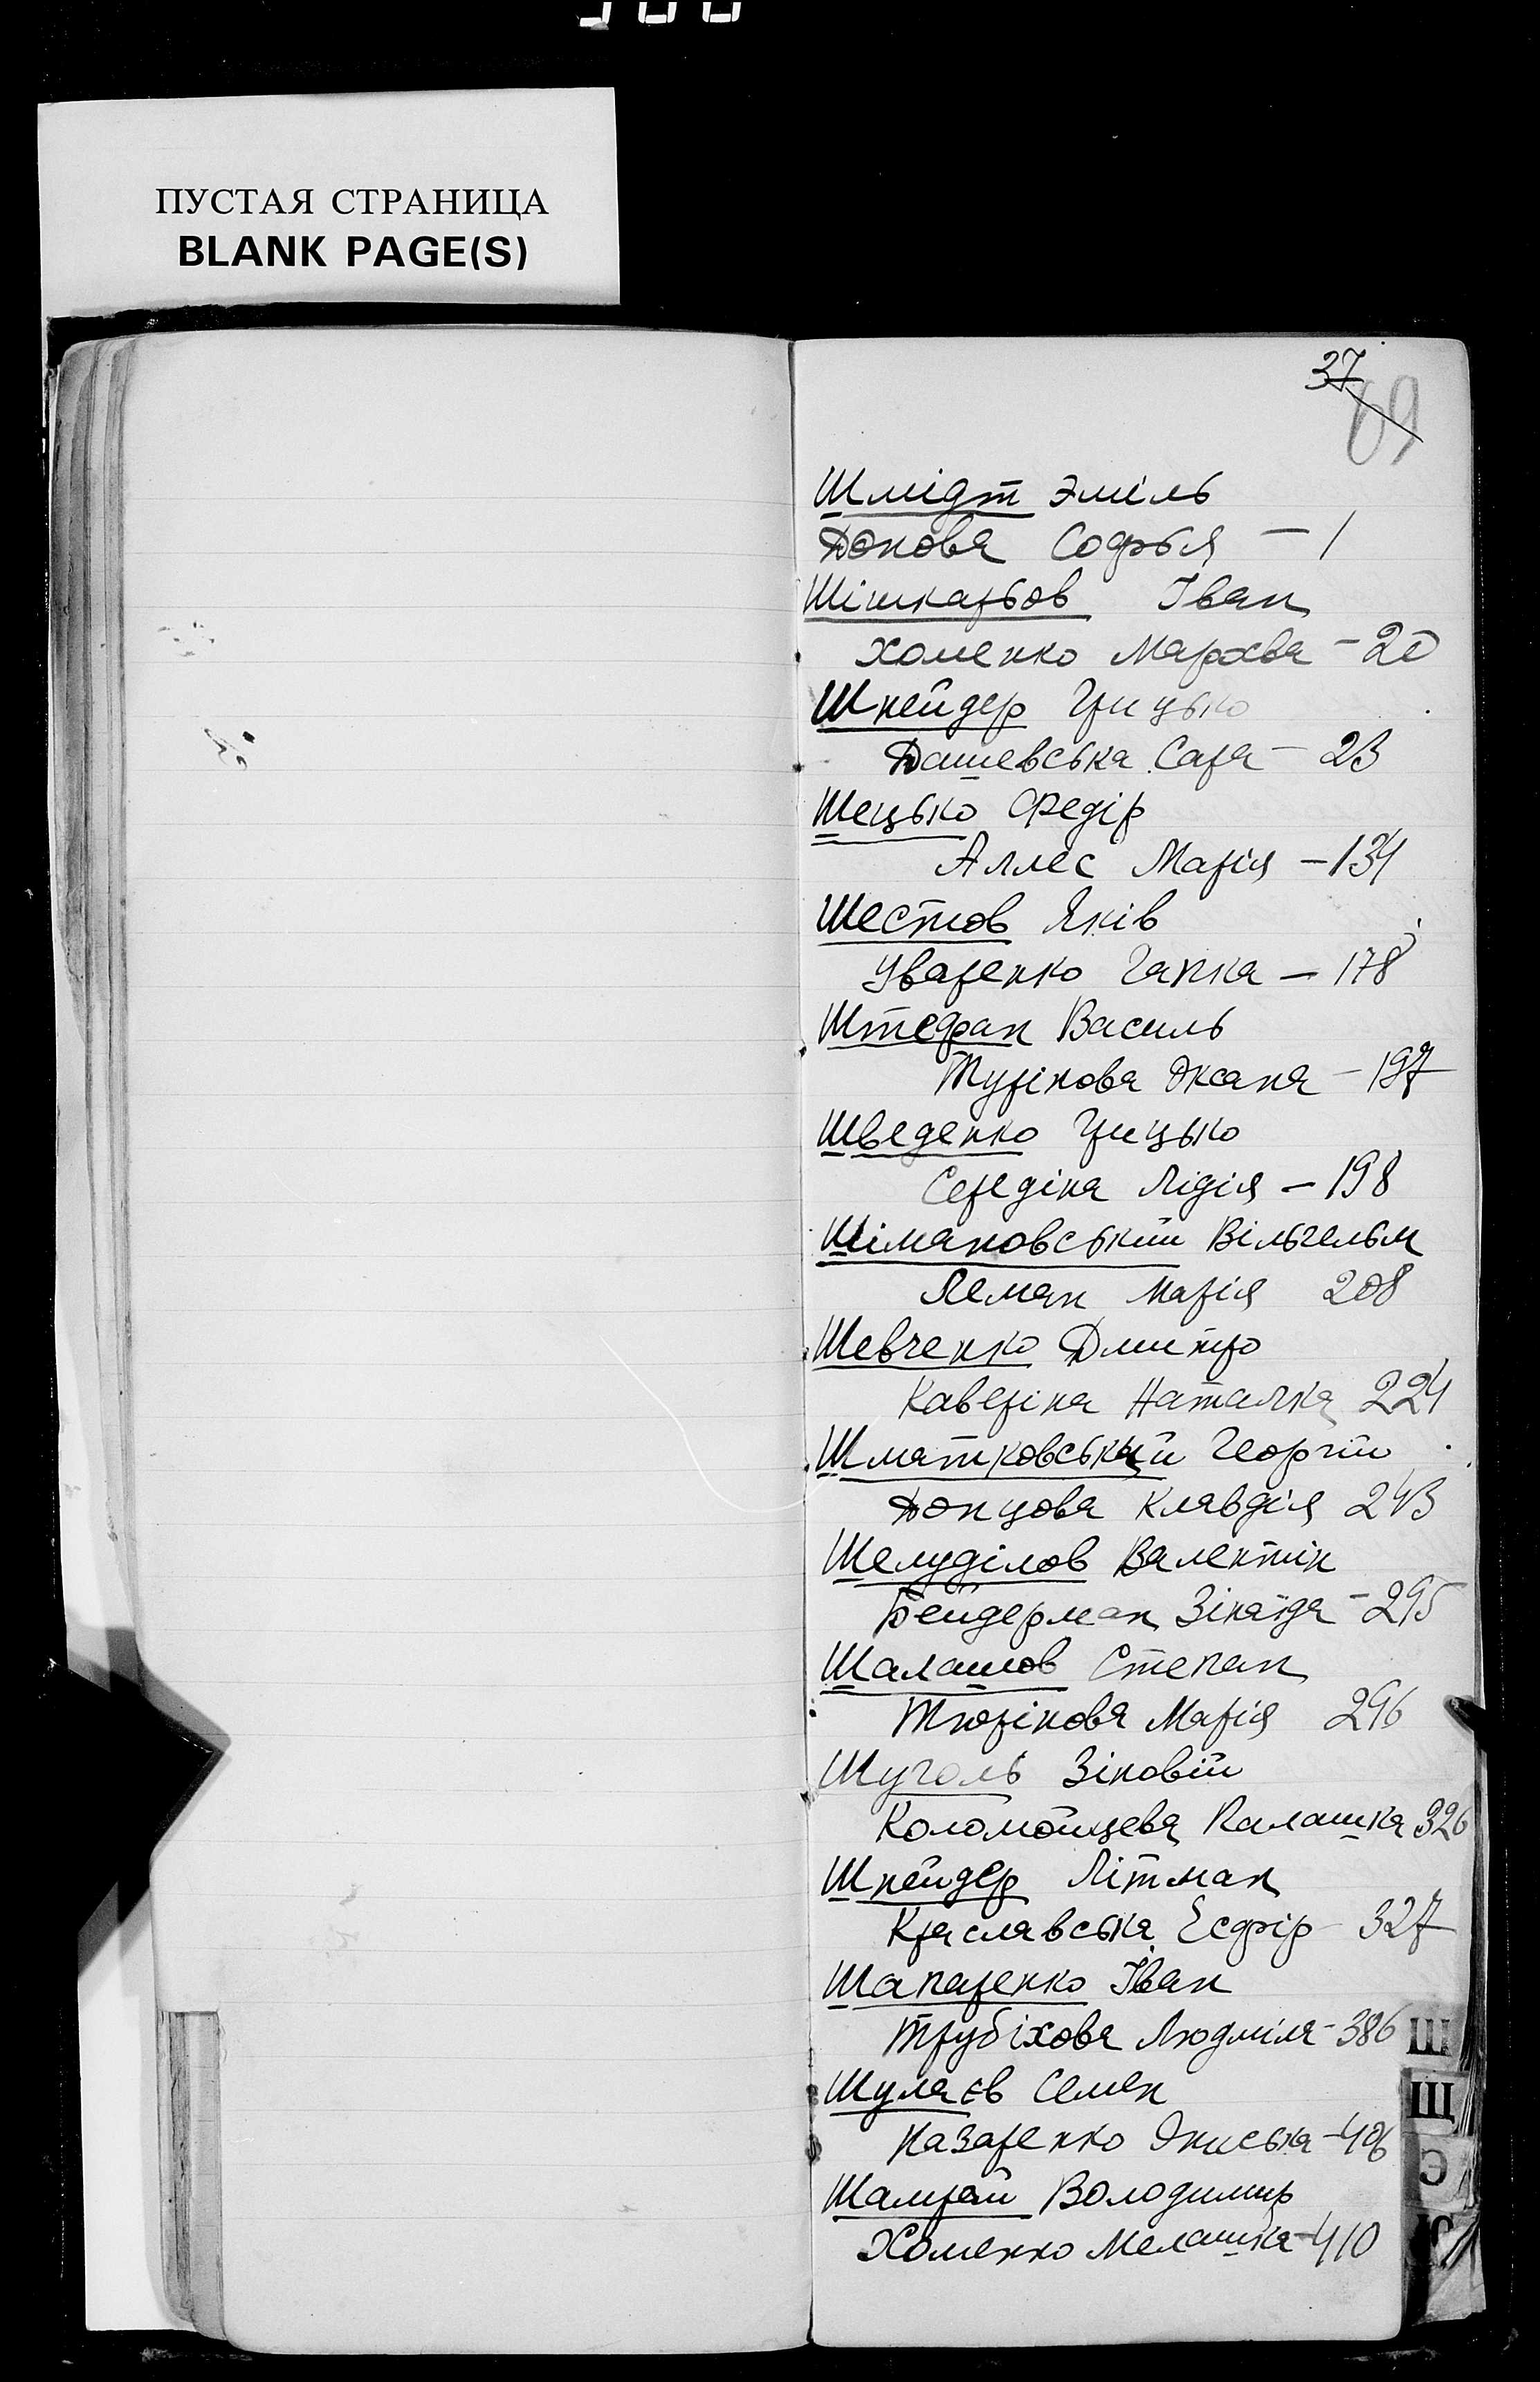 ПУСТАЯ СТРАНИЦА
BLANK PAGE(S)
37
69
Шмідт Эміль
Донова Софья – 1
Шишкарьов Іван
Хоменко Мархва – 20
Шнейдер Грицько
Дашевська Сара – 23
Шецько Федір
Аллес Марія – 134
Шестов Яків
Уваренко Гапка – 178
Штефан Василь
Турінова Оксана – 197
Шведенко Грицько
Середіна Лідія – 198
Шімановський Вільгельм
Леман Марія 208
Шевченко Дмитро
Каверіна Наталка 224
Шматковський Георгій
Донцова Клавдія 243
Шелуділов Валентін
Бейдерман Зінаїда – 295
Шалашов Степан
Тюрінова Марія 296
Шуголь Зіновій
Коломойцева Палашка 326
Шнейдер Літман
Краславська Есфір – 327
Шапаренко Іван
Трубіхова Людміла – 386
Шулаєв Семен
Назаренко Ониська – 406
Шамрай Володимир
Хоменко Мелашка – 410
Ш
Щ
Э
Ю